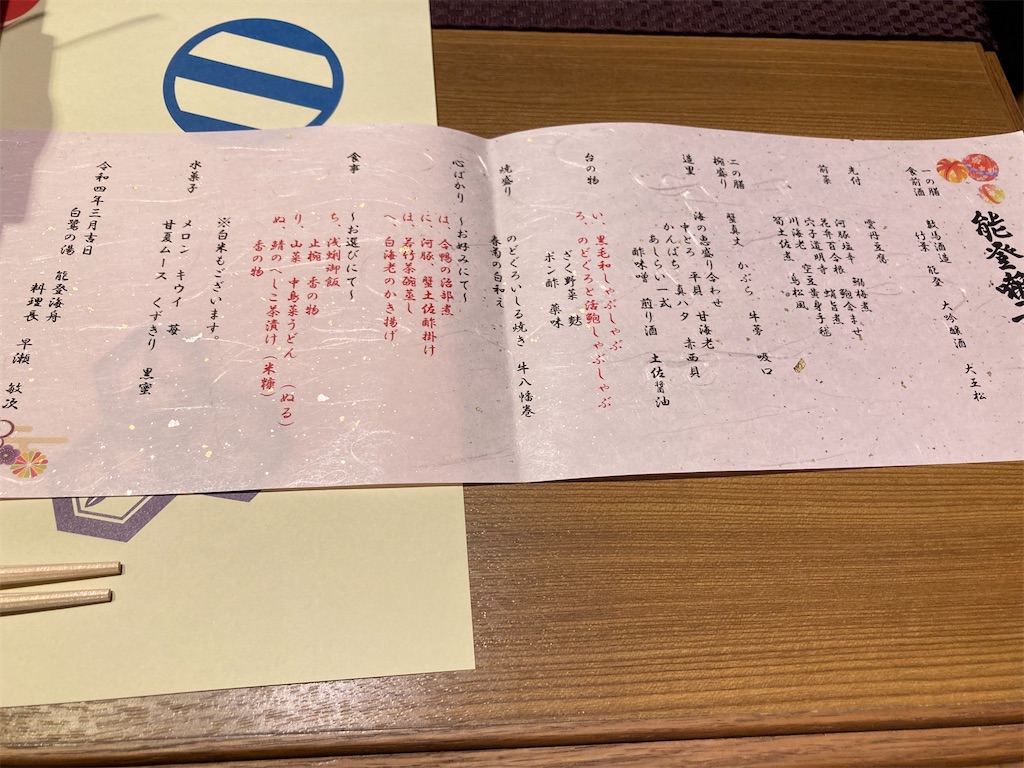 能登
一の膳
食前酒 数馬酒造 能登 大吟醸酒
竹葉 大王松
先付 雲丹豆腐
前菜 河豚塩辛 飯梅煮
花弁百合根 鮑含ませ
穴子道明寺 蛸旨煮
川海老 空豆黄身手毬
筍土佐煮 鳥松風
二の膳
椀盛り 蟹真丈 かぶら 牛蒡 吸口
造里 海の恵盛り合わせ
中とろ 平貝 甘海老
かんぱち 真ハタ 赤西貝
あしらい一式
酢味噌 煎り酒 土佐醤油
台の物 い、黒毛和しゃぶしゃぶ
ろ、のどくろと活鮑しゃぶしゃぶ
ざく野菜 麩
ポン酢 薬味
焼盛り のどくろいしる焼き 牛八幡巻
春菊の白和え
心ばかり 〜お好みにて〜
は、合鴨の治部煮
に、河豚、蟹土佐酢掛け
ほ、若竹茶碗蒸し
へ、白海老のかき揚げ
食事 〜お選びにて〜
ち、浅蜊御飯
止椀 香の物
り、山菜 中島菜うどん (ぬる)
ぬ、鯖のへしこ茶漬け (米糠)
香の物
※白米もございます。
水菓子 メロン キウイ 苺
甘夏ムース くずきり 黒蜜
令和四年三月吉日
白鷺の湯 能登海舟
料理長 早瀬 敏次